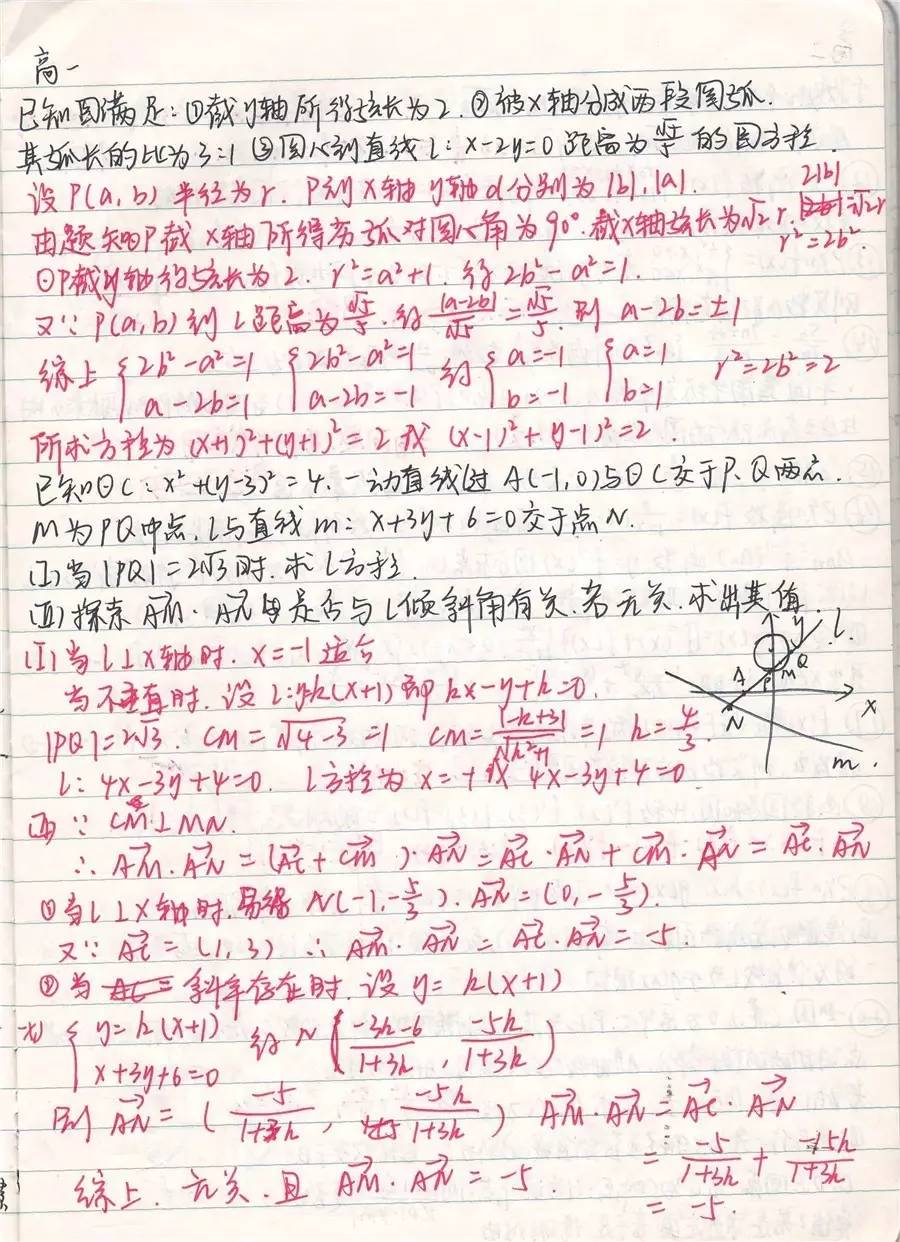 高一
已知圆满足:①截y轴所得弦长为2.②被x轴分成两段圆弧.
其弧长的比为3:1 ③圆心到直线l:x-2y=0距离为√5/5的圆方程.
设P(a,b)半径为r.P到x轴y轴d分别为|b|,|a|.
由题知⊙P截x轴所得劣弧对圆心角为90°.截x轴弦长为√2r. 2|b|=√2r
r²=2b².
⊙P截y轴得弦长为2. r²=a²+1.得2b²-a²=1.
又∵P(a,b)到l距离为√5/5.得|a-2b|/√5=√5/5.则a-2b=±1
综上{2b²-a²=1 a-2b=1 {2b²-a²=1 a-2b=-1 得{a=-1 b=-1 {a=1 b=1 r²=2b²=2
所求方程为(x+1)²+(y+1)²=2或(x-1)²+(y-1)²=2.
已知⊙C:x²+(y-3)²=4.一动直线l过A(-1,0)与⊙C交于P、Q两点.
M为PQ中点.l与直线m:x+3y+6=0交于点N.
(Ⅰ)当|PQ|=2√3时.求l方程.
(Ⅱ)探索AM·AN是否与l倾斜角有关.若无关.求出其值.
(Ⅰ)当l⊥x轴时.x=-1适合
当不垂直时.设l:y=k(x+1)即kx-y+k=0.
|PQ|=2√3∴CM=√4-3=1 CM=|-k+3|/√k²+1=1 k=4/3.
l:4x-3y+4=0. l方程为x=-1或4x-3y+4=0
y l. A P M Q x N m.
(Ⅱ)∵CM⊥MN.
∴AM·AN=(AC+CM)·AN=AC·AN+CM·AN=AC·AN
①当l⊥x轴时.易得N(-1,-5/3).AN=(0,-5/3).
又∵AC=(1,3)∴AM·AN=AC·AN=-5.
②当斜率存在时.设y=k(x+1)
{y=k(x+1) x+3y+6=0 得N(-3k-6/1+3k,-5k/1+3k)
则AN=(-5/1+3k,-5k/1+3k) AM·AN=AC·AN
=-5/1+3k+-15k/1+3k
综上.无关.且AM·AN=-5.
=-5.